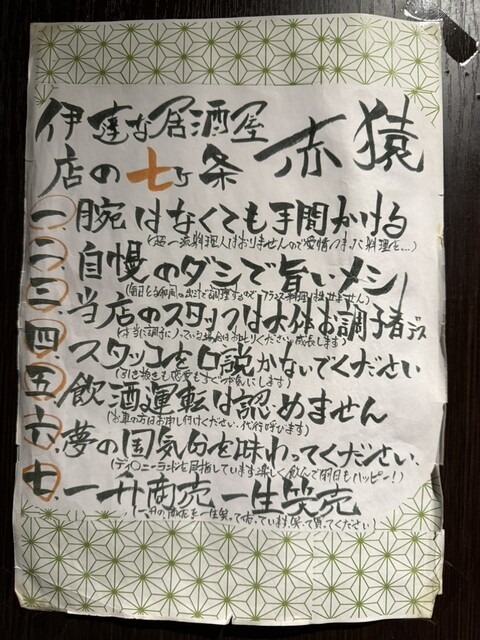 伊達な居酒屋 赤猿
店の七ヶ条
一、腕はなくても手間かける
(超一流料理人はおりませんので愛情つまった料理を…)
二、自慢のダシで旨いメシ
三、当店のスタッフは大体お調子者デス
(本当に調子にのっている場合はお叱りください。成長します)
四、スタッフを口説かないでください
(引き抜きも恋愛もすぐついします)
五、飲酒運転は認めません
(お車の方はお申し付けください。代行呼びます)
六、夢の国気分を味わってください。
(ディ〇ニーランドを目指しています楽しく飲んで明日もハッピー!)
七、一升商売一生笑売